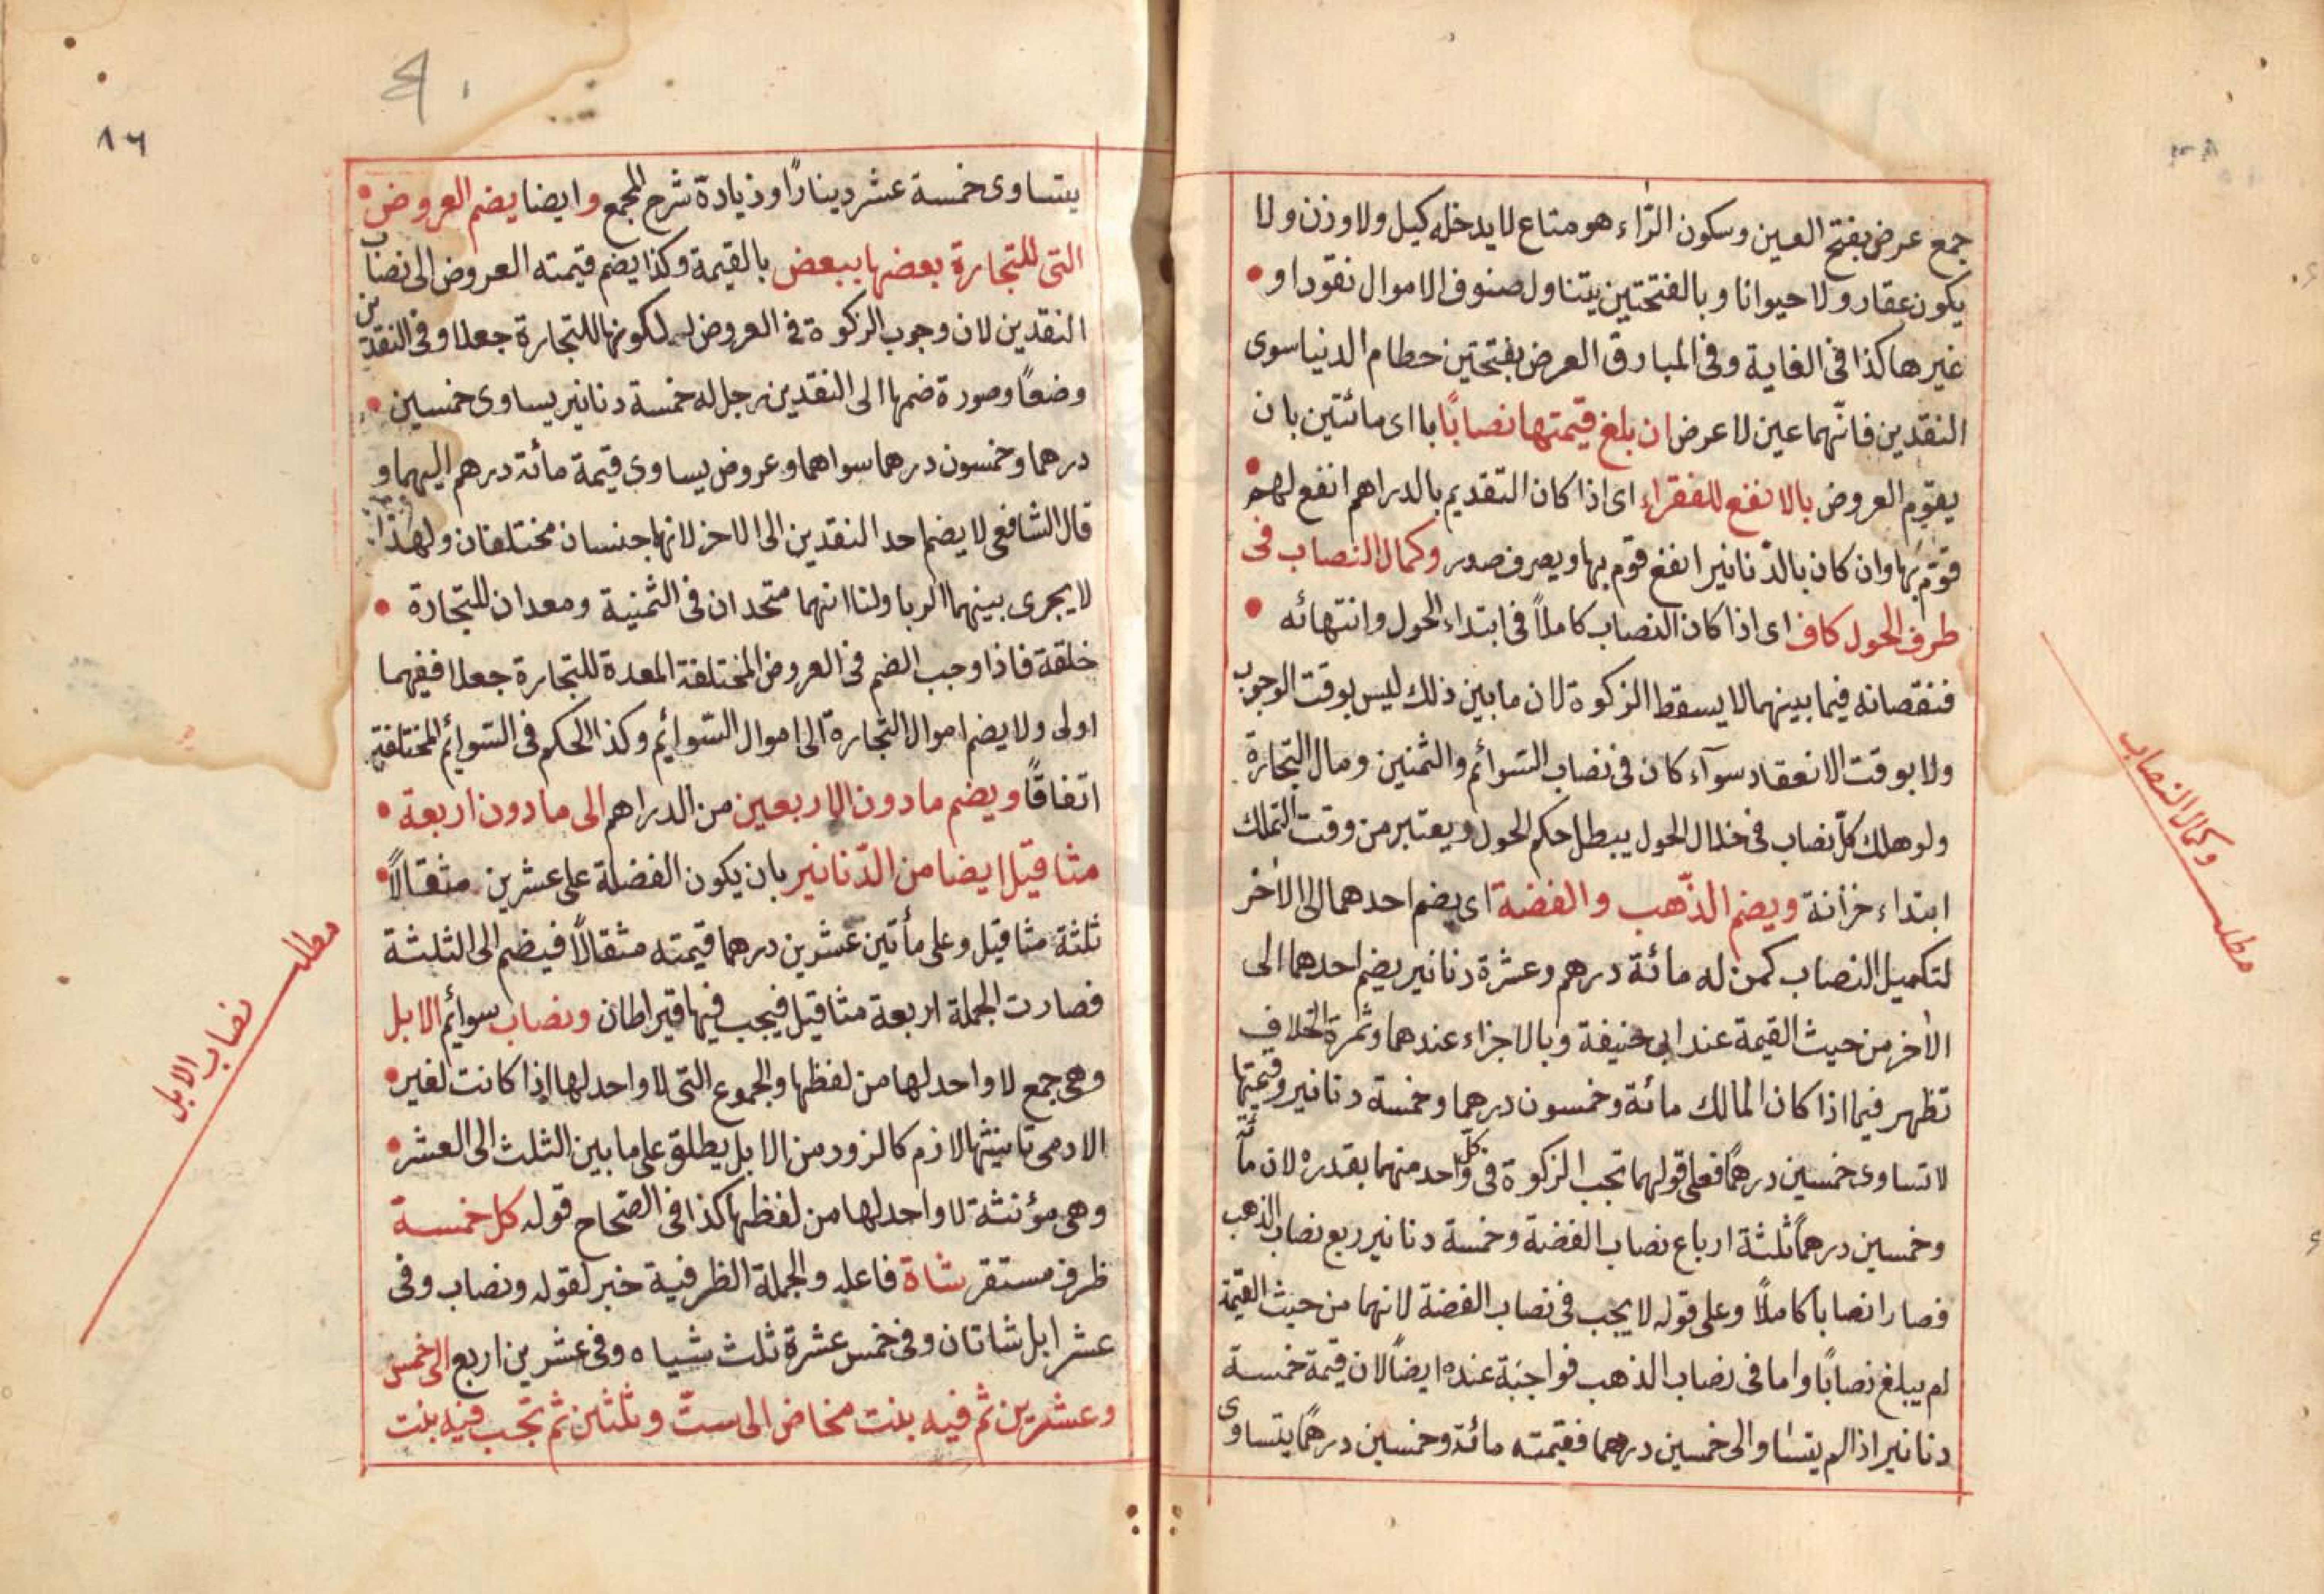 جمع عرض بفتح العين وسكون الرّاء هو متاع لا يدخله كيل ولا وزن ولا
يكون عقار ولا حيوانا وبالفتحتين يتناول صنوف الاموال نقودا و
غيرها كذا فى الغاية وفى المبارق العرض بفتحتين حطام الدنيا سوى
النقدين فانّهما عين لا عرض ان بلغ قيمتها نصابًا با اى مائتين بان
يقوّم العروض بالانفع للفقراء اى اذا كان التقديم بالدراهم انفع لهم
قوّم بها وان كان بالدّنانير انفع قوم بها ويصرف صدر وكمال النصاب فى
طرف الحول كاف اى اذا كان النصاب كاملاً فى ابتداء الحول وانتهائه
فنقصانه فيما بينهما لا يسقط الزكوة لان ما بين ذلك ليس بوقت الوجوب
ولا بوقت الانعقاد سوآء كان فى نصاب السّوائم والثمنين ومال التّجارة
ولو هلك كلّ نصاب فى خلال الحول يبطل حكم الحول ويعتبر من وقت التملك
ابتداء خزانة ويضم الذّهب والفضة اى يضم احدهما الى الاخر
لتكميل النصاب كمن له مائة درهم وعشرة دنانير يضم احدهما الى
الاخر من حيث القيمة عند ابى حنيفة وبالاجزاء عندهما وثمرة الخلاف
تظهر فيما اذا كان المالك مائة وخمسون درهما وخمسة دنانير وقيمتها
لا تساوى خمسين درهمًا فعلى قولهما تجب الزكوة فى كلّ واحد منهما بقدره لان مائة
وخمسين درهمًا ثلثة ارباع نصاب الفضة وخمسة دنانير ربع نصاب الذهب
فصارا نصابا كاملاً وعلى قوله لا يجب فى نصاب الفضة لانهما من حيث القيمة
لم يبلغ نصابًا واما فى نصاب الذهب فواجبة عنده ايضاً لان قيمة خمسة
دنانير اذا لم يتساوا الى خمسين درهما فقيمته مائة وخمسين درهمًا يتساوى
وكمال النصاب
مطلب
٨٦
يتساوى خمسة عشر دينارًا وزيادة شرح المجمع وايضا يضم العروض
التى للتجارة بعضها ببعض بالقيمة وكذا يضم قيمته العروض الى نصاب
النقدين لان وجوب الزكوة فى العروض لكونها للتجارة جعلا وفى النقدين
وضعًا وصورة ضمها الى النقدين رجل له خمسة دنانير يساوى خمسين
درهما وخمسون درهما سواهما وعروض يساوى قيمة مائة درهم اليهما و
قال الشافعى لا يضم احد النقدين الى الاخر لانهما جنسان مختلفان ولهذا
لا يجرى بينهما الربا ولنا انهما متحدان فى الثمنية ومعدان للتجارة
خلقة فاذا وجب الضم فى العروض المختلفة المعدة للتجارة جعلا ففيهما
اولى ولا يضم اموال التّجارة الى اموال السّوائم وكذا الحكم فى السّوائم المختلفة
اتفاقًا ويضم ما دون الاربعين من الدراهم الى ما دون اربعة
مثاقيل ايضا من الدّنانير بان يكون الفضلة على عشرين مثقالاً
ثلثة مثاقيل وعلى مأتين عشرين درهما قيمته مثقالاً فيضم الى الثلثة
فصارت الجملة اربعة مثاقيل فيجب فيها قيراطان ونصاب سوائم الابل
وهى جمع لا واحد لها من لفظها والجموع التى لا واحد لها اذا كانت لغير
الادمى تانيثها لازم كالزود من الابل يطلق على ما بين الثلث الى العشر
وهى مؤنثة لا واحد لها من لفظها كذا فى الصّحاح قوله كل خمسة
ظرف مستقر شاة فاعله والجملة الظرفية خبر لقوله ونصاب وفى
عشر ابل شاتان وفى خمس عشرة ثلث شياه وفى عشرين اربع الى خمس
وعشرين ثم فيه بنت مخاض الى ستّ وثلثين ثم تجب فيه بنت
مطلب
نصاب الابل